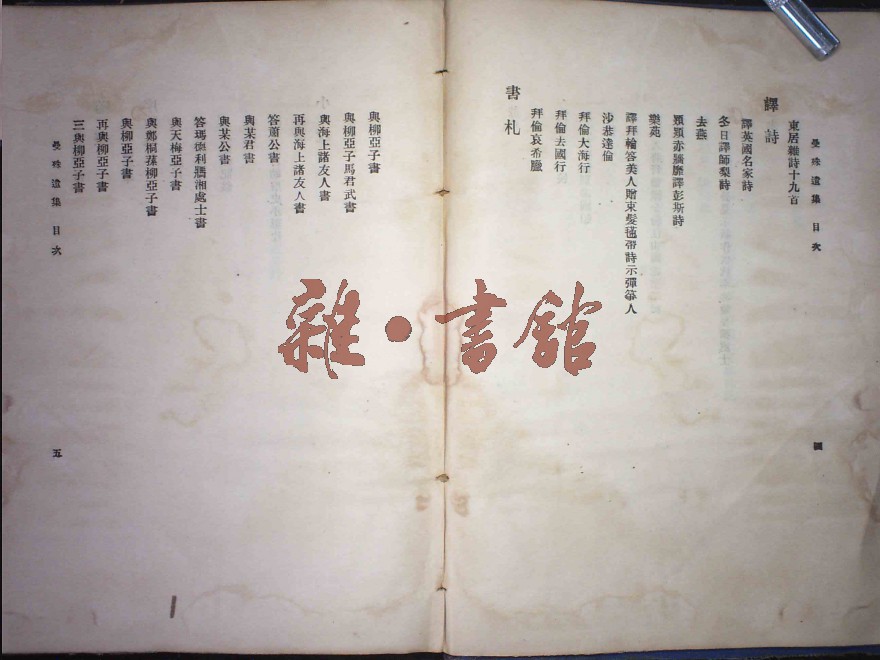 曼殊遺集 目次
東居雜詩十九首
譯詩
譯英國名家詩
冬日譯師梨詩
去燕
熲熲赤牆靡譯彭斯詩
樂苑
譯拜輪答美人贈束髮毺帶詩示彈箏人
沙恭達倫
拜倫大海行
拜倫去國行
拜倫哀希臘
書札
四
與柳亞子書
與柳亞子馬君武書
與海上諸友人書
再與海上諸友人書
答蕭公書
與某君書
與某公書
答瑪德利鵬湘處士書
與天梅亞子書
與鄭桐蓀柳亞子書
與柳亞子書
再與柳亞子書
三與柳亞子書
曼殊遺集 目次
五
雜·書館